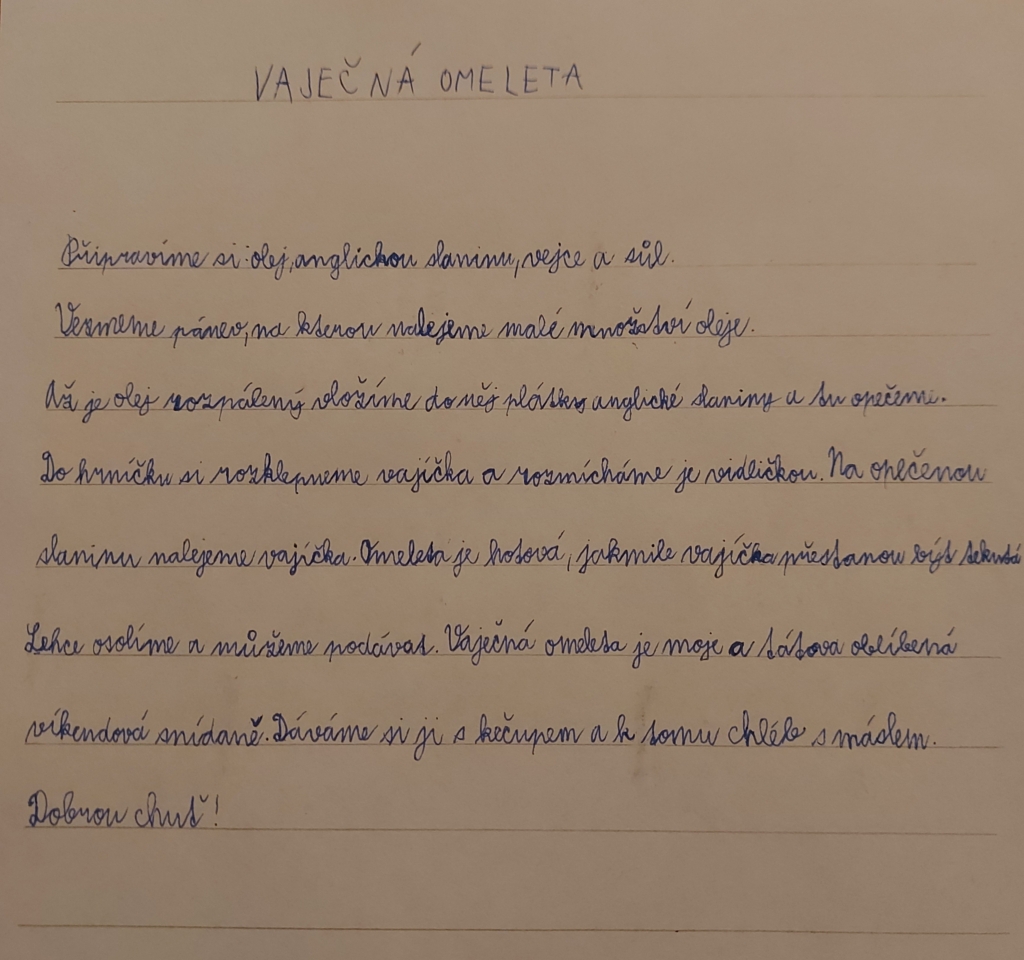 VAJEČNÁ OMELETA
Připravíme si olej, anglickou slaninu, vejce a sůl.
Vezmeme pánev, na kterou nalejeme malé množství oleje.
Až je olej rozpálený vložíme do něj plátky anglické slaniny a tu opečeme.
Do hrníčku si rozklepneme vajíčka a rozmícháme je vidličkou. Na opečenou
slaninu nalejeme vajíčka. Omeleta je hotová, jakmile vajíčka přestanou být tekutá
Lehce osolíme a můžeme podávat. Vaječná omeleta je moje a tátova oblíbená
víkendová snídaně. Dáváme si ji s kečupem a k tomu chléb s máslem.
Dobrou chuť!